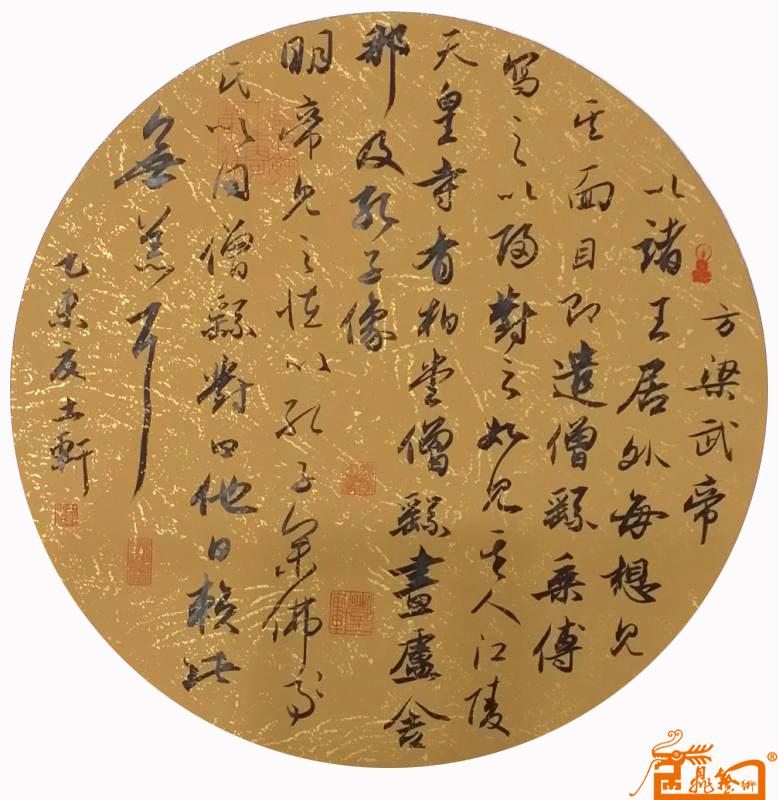 方梁武帝
以諸王居外每想見
其面目即遣僧繇乘傳
寫之以歸對之如見其人江陵
天皇寺有柏堂僧繇畫盧舍
那及孔子像
明帝見之怪以孔子雜佛
氏以問僧繇對曰他日賴此
無恙耳
乙未夏士軒